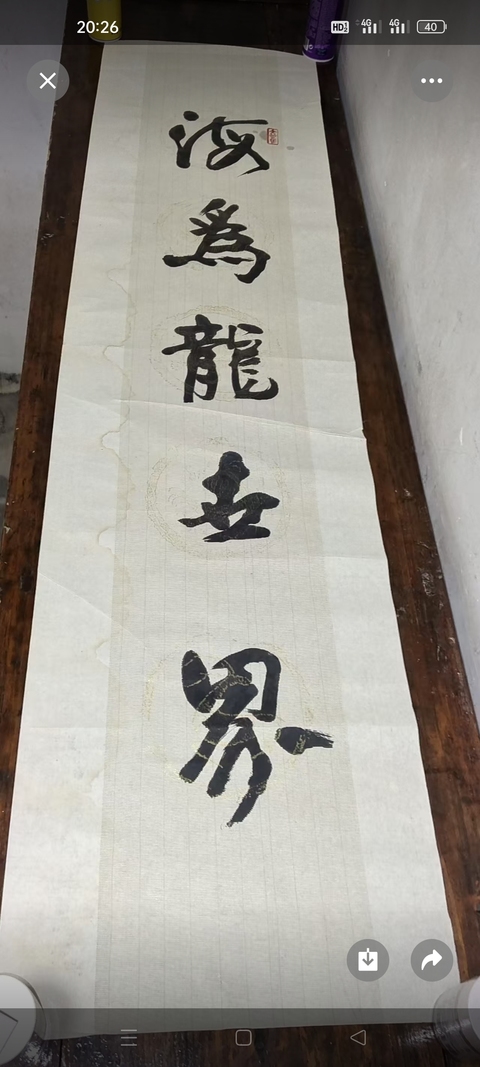 20:26
HD 1 2 4G 4G 40
海為龍世界